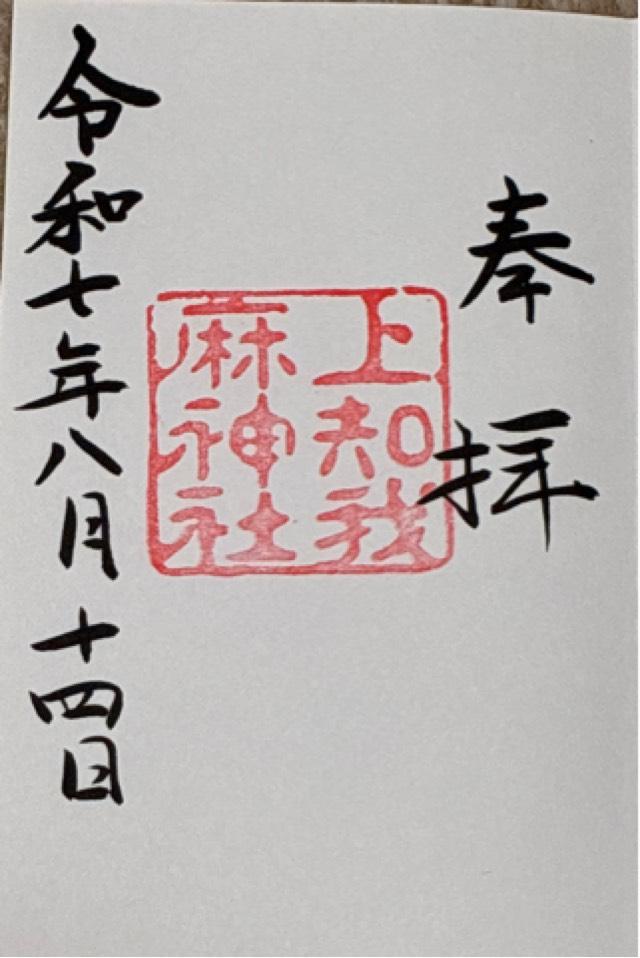 奉拝
上知我
麻神社
令和七年八月十四日